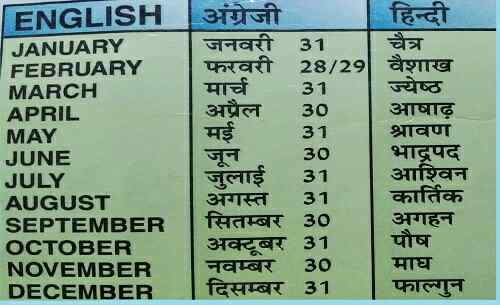 ENGLISH अंग्रेजी हिन्दी
JANUARY जनवरी 31 चैत्र
FEBRUARY फरवरी 28/29 वैशाख
MARCH मार्च 31 ज्येष्ठ
APRIL अप्रैल 30 आषाढ़
MAY मई 31 श्रावण
JUNE जून 30 भाद्रपद
JULY जुलाई 31 आश्विन
AUGUST अगस्त 31 कार्तिक
SEPTEMBER सितम्बर 30 अगहन
OCTOBER अक्टूबर 31 पौष
NOVEMBER नवम्बर 30 माघ
DECEMBER दिसम्बर 31 फाल्गुन